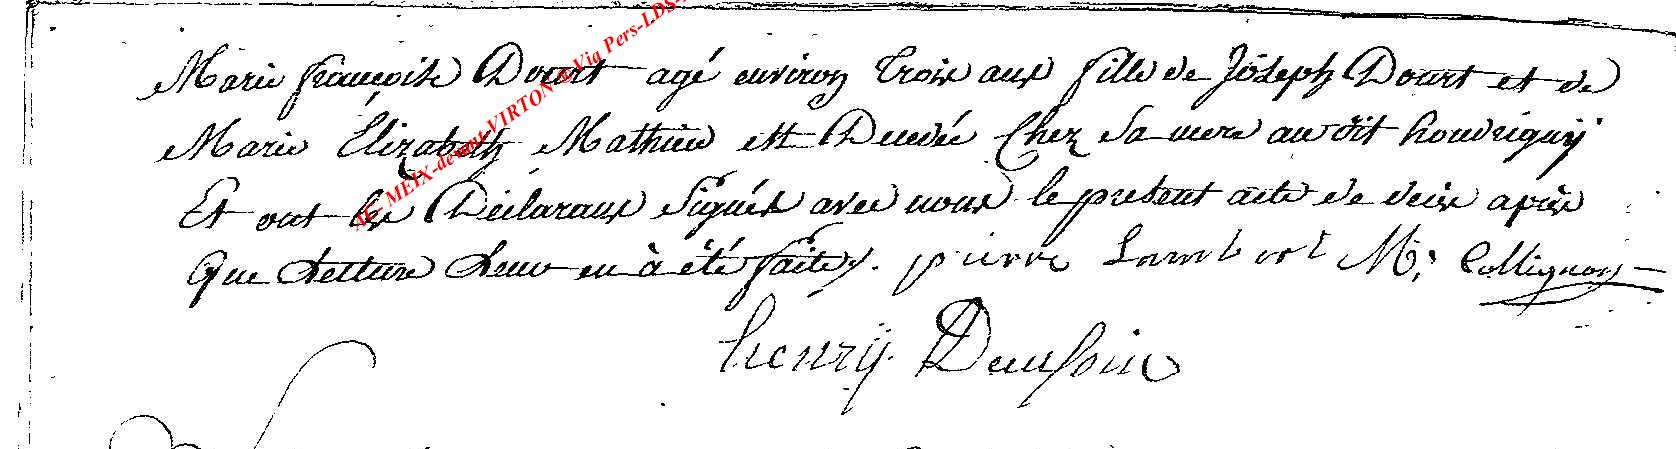 Marie françoise Douart agé environ trois ans fille de Joseph Douart et de
Marie Élizabeth Mathieu est Decedée Chez Sa mere au dit houdrigny
Et ont les Déclarans Signés avec nous le present acte de decès après
Que Lecture Leur en à été faite. pierre Lambert M: Collignon
henrÿ
AC MEIX-devant-VIRTON Via Pers-LDS